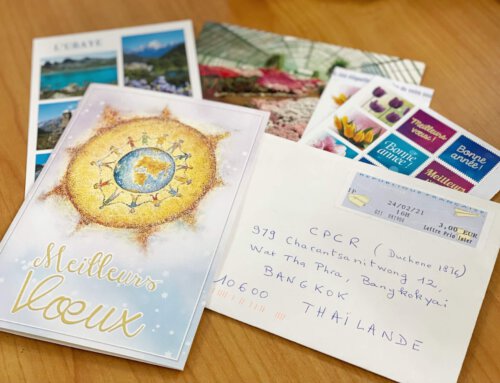 L'UBAYE
Meilleurs
Vœux
Meilleurs
vœux!
Bonne
année!
Bonne
année!
Meilleurs
24/02/21
3,00 EUR
Lettre Prio Inter
CPCR (Duchene 1836)
979 Charantsanitwong 12,
Wat Tha Phra, Bangkokyai
BANGKOK
10600
THAÏLANDE